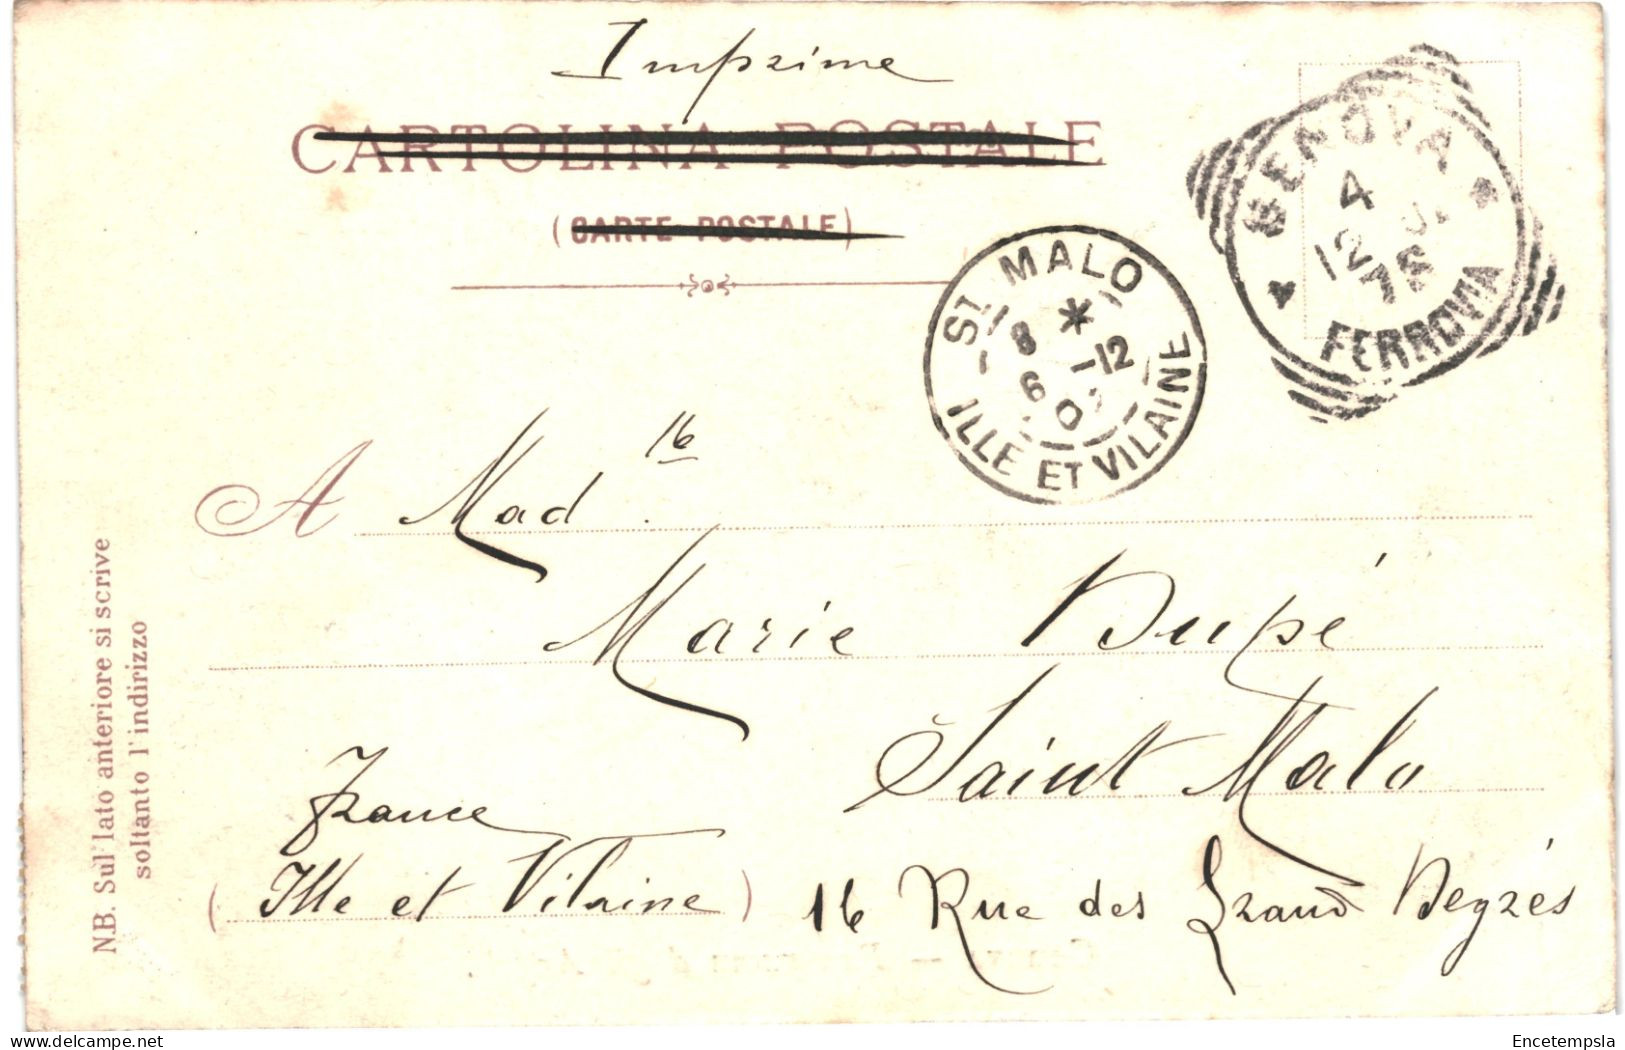 Imprime
CARTOLINA POSTALE
(CARTE POSTALE)
GENOVA
4
12
FERROVIA
ST MALO
8 *
6 -12
0
ILLE ET VILAINE
A Mad.
Marie Dupé
Saint Malo
France
(Ille et Vilaine) 16 Rue des Grand Degrés
N.B. Sul' lato anteriore si scrive
soltanto l'indirizzo
delcampe.net
Encetempsla